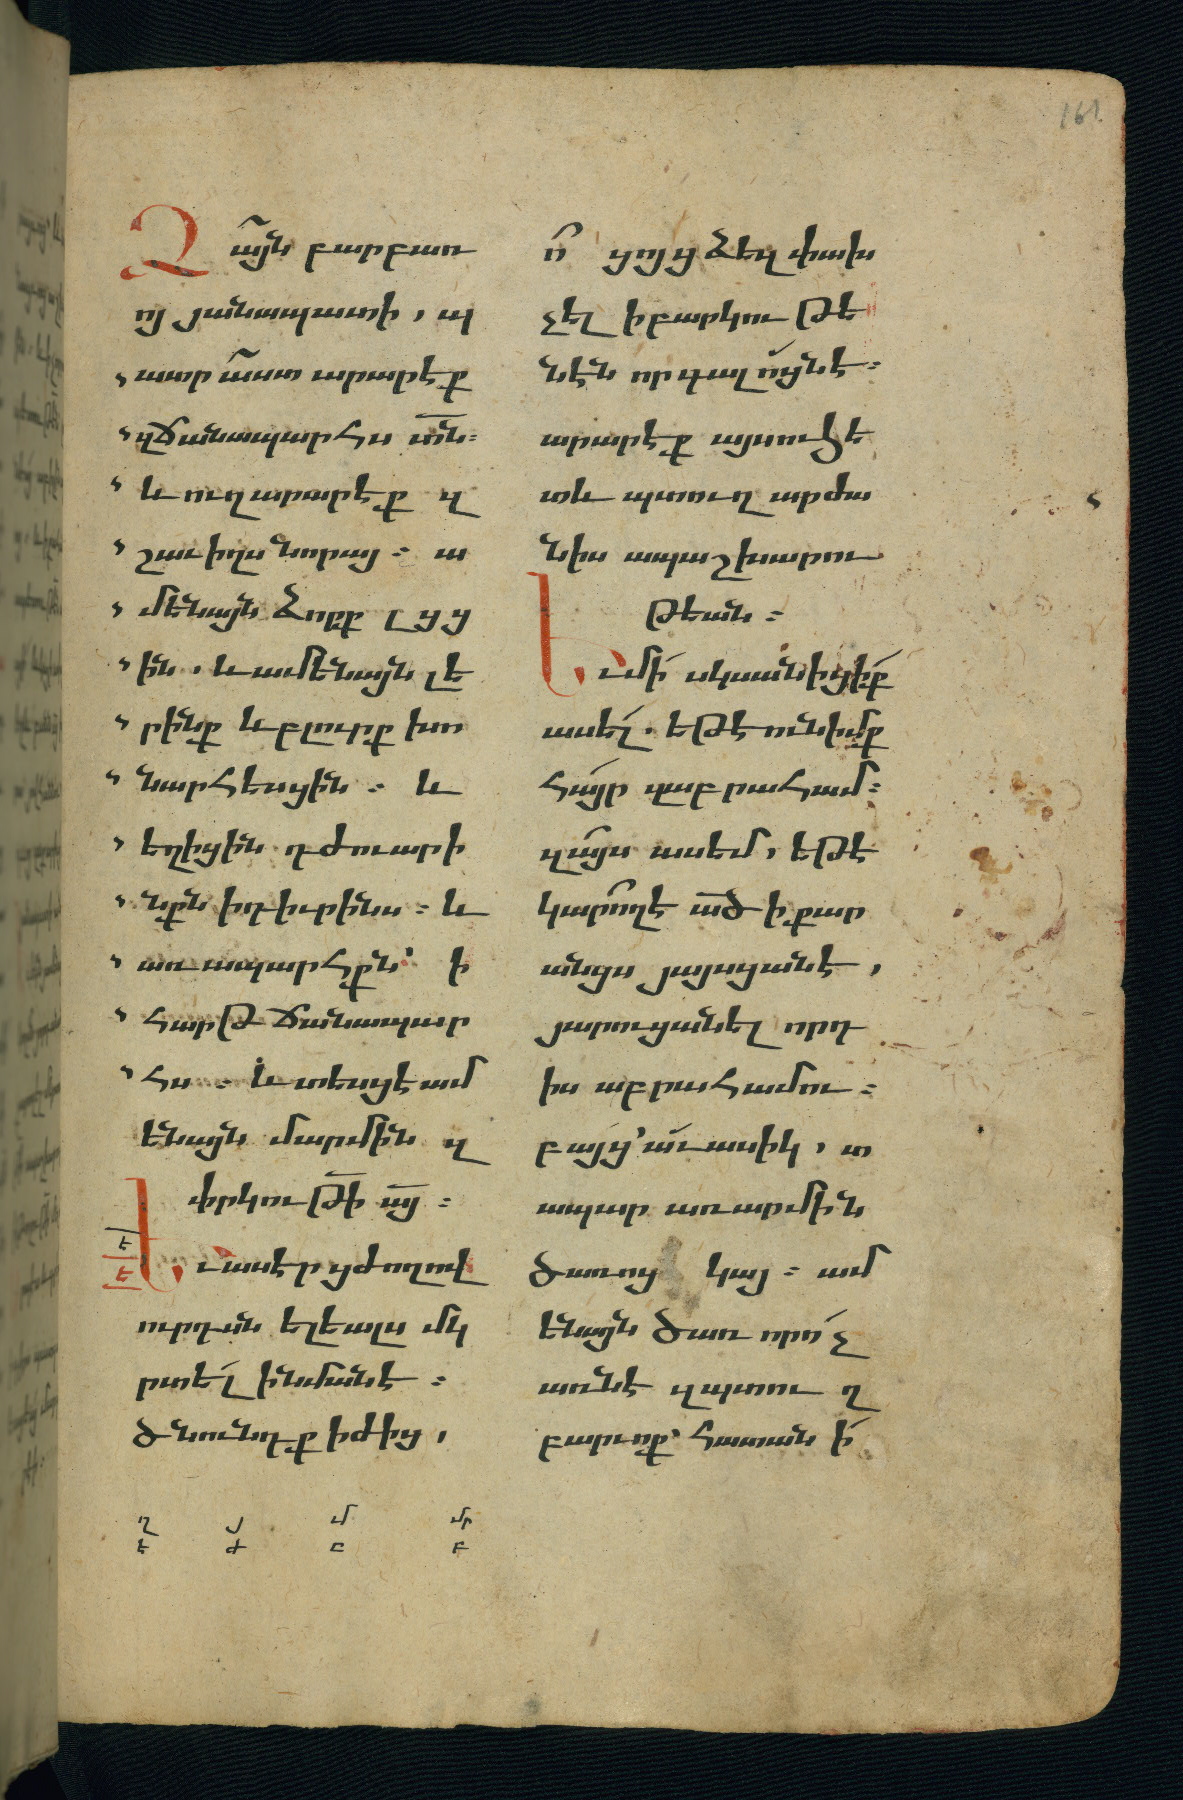 161
Ձայն բարբառ
ոյ յանապատի, պ
ատրաստ արարէք
զճանապարհս տն։
և ուղ արարէք զ
շաւիղս նորա. ա
մենայն ձորք լցց
ին. և ամենայն լե
րինք և բլուրք խո
նարհեսցին։ և
եղիցին դժուարի
նքն ի դիւրինս։ և
առապարհքն՝ ի
հարթ ճանապար
հս։ և տեսցէ ամ
ենայն մարմին զ
փրկութի այ։
Ե
Է
Եւ ասէր ցժողով
ուրդսն ելեալս մկ
րտել ի նմանէ։
ծնունդք իժից,
ո ցոյց ձեզ փախ
չել ի բարկութե
նէն որ գալոցնէ։
արարէք այսուհե
տև պտուղ արժա
նիս ապաշխարու
թեան։
Եւ մի սկսանիցիք
ասել. եթէ ունիմք
հայր զաբրահամ։
զայս ասեմ, եթէ
կարող է ած ի քար
անցս յայսցանէ,
յարուցանել որդ
իս աբրահամու։
բայց՝ աւասիկ, տ
ապար առ արմին
ծառոց կայ։ ամ
ենայն ծառ որ ոչ
առնէ զպտուղ
բարւոք՝ հատանի
ղ յ մ մր
է ժ բ բ